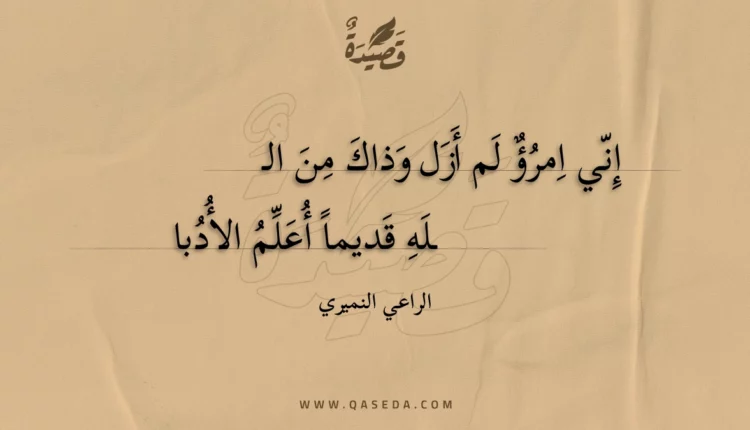 قَصِيدَةٌ
إِنّي اِمرُؤٌ لَم أَزَل وَذاكَ مِنَ الـ
ـلَهِ قَديماً أُعَلِّمُ الأُدُبا
الراعي النميري
WWW.QASEDA.COM